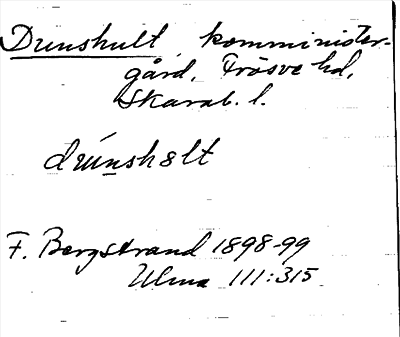 Drunshult, komminister-
gård, Frösve hd,
Skarab. l.
drúnshult
F. Bergstrand 1898-99
Ulma 111:315